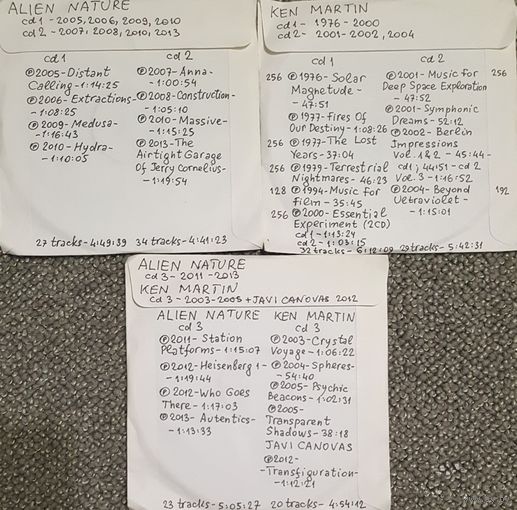 ALIEN NATURE
cd 1 - 2005, 2006, 2009, 2010
cd 2 - 2007, 2008, 2010, 2013
cd 1
℗ 2005 - Distant
Calling - 1:14:25
℗ 2006 - Extractions -
- 1:08:25
℗ 2009 - Medusa -
- 1:16:43
℗ 2010 - Hydra -
- 1:10:05
27 tracks - 4:49:39
cd 2
℗ 2007 - Anna -
- 1:00:54
℗ 2008 - Construction -
- 1:05:10
℗ 2010 - Massive -
- 1:15:25
℗ 2013 - The
Airtight Garage
Of Jerry Cornelius -
- 1:19:54
34 tracks - 4:41:23
KEN MARTIN
cd 1 - 1976 - 2000
cd 2 - 2001 - 2002, 2004
cd 1
256 ℗ 1976 - Solar
Magnetude -
- 47:51
℗ 1977 - Fires Of
Our Destiny - 1:08:26
256 ℗ 1977 - The Lost
Years - 37:04
256 ℗ 1979 - Terrestrial
Nightmares - 46:23
128 ℗ 1994 - Music for
film - 35:45
256 ℗ 2000 - Essential
Experiment (2CD)
cd 1 - 1:13:24
cd 2 - 1:03:15
32 tracks - 6:12:09
cd 2
℗ 2001 - Music for 256
Deep Space Exploration
- 47:52
℗ 2001 - Symphonic
Dreams - 52:12
℗ 2002 - Berlin
Impressions
Vol. 1 & 2 - 45:44 -
cd 1, 44:51 - cd 2
Vol. 3 - 1:16:52
℗ 2004 - Beyond 192
Uetraviolet -
- 1:15:01
29 tracks - 5:42:31
ALIEN NATURE
cd 3 - 2011 - 2013
KEN MARTIN
cd 3 - 2003 - 2005 + JAVI CANOVAS 2012
ALIEN NATURE
cd 3
℗ 2011 - Station
Platforms - 1:15:07
℗ 2012 - Heisenberg 1 -
- 1:19:44
℗ 2012 - Who Goes
There - 1:17:03
℗ 2013 - Autentics -
- 1:13:33
23 tracks - 5:05:27
KEN MARTIN
cd 3
℗ 2003 - Crystal
Voyage - 1:06:22
℗ 2004 - Spheres -
- 54:40
℗ 2005 - Psychic
Beacons - 1:02:31
℗ 2005 -
Transparent
Shadows - 38:18
JAVI CANOVAS
℗ 2012 -
- Transfiguration -
- 1:12:21
20 tracks - 4:54:12